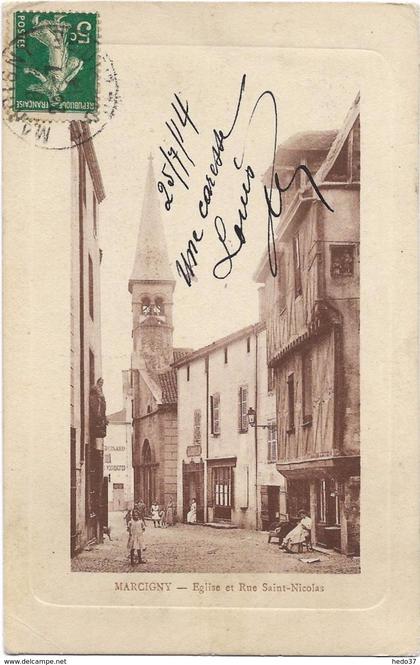 5c
POSTES
REPUBLIQUE FRANCAISE
25/7/14
Une caresse
Louis
MARCIGNY — Eglise et Rue Saint-Nicolas
https://www.delcampe.net
hedo37